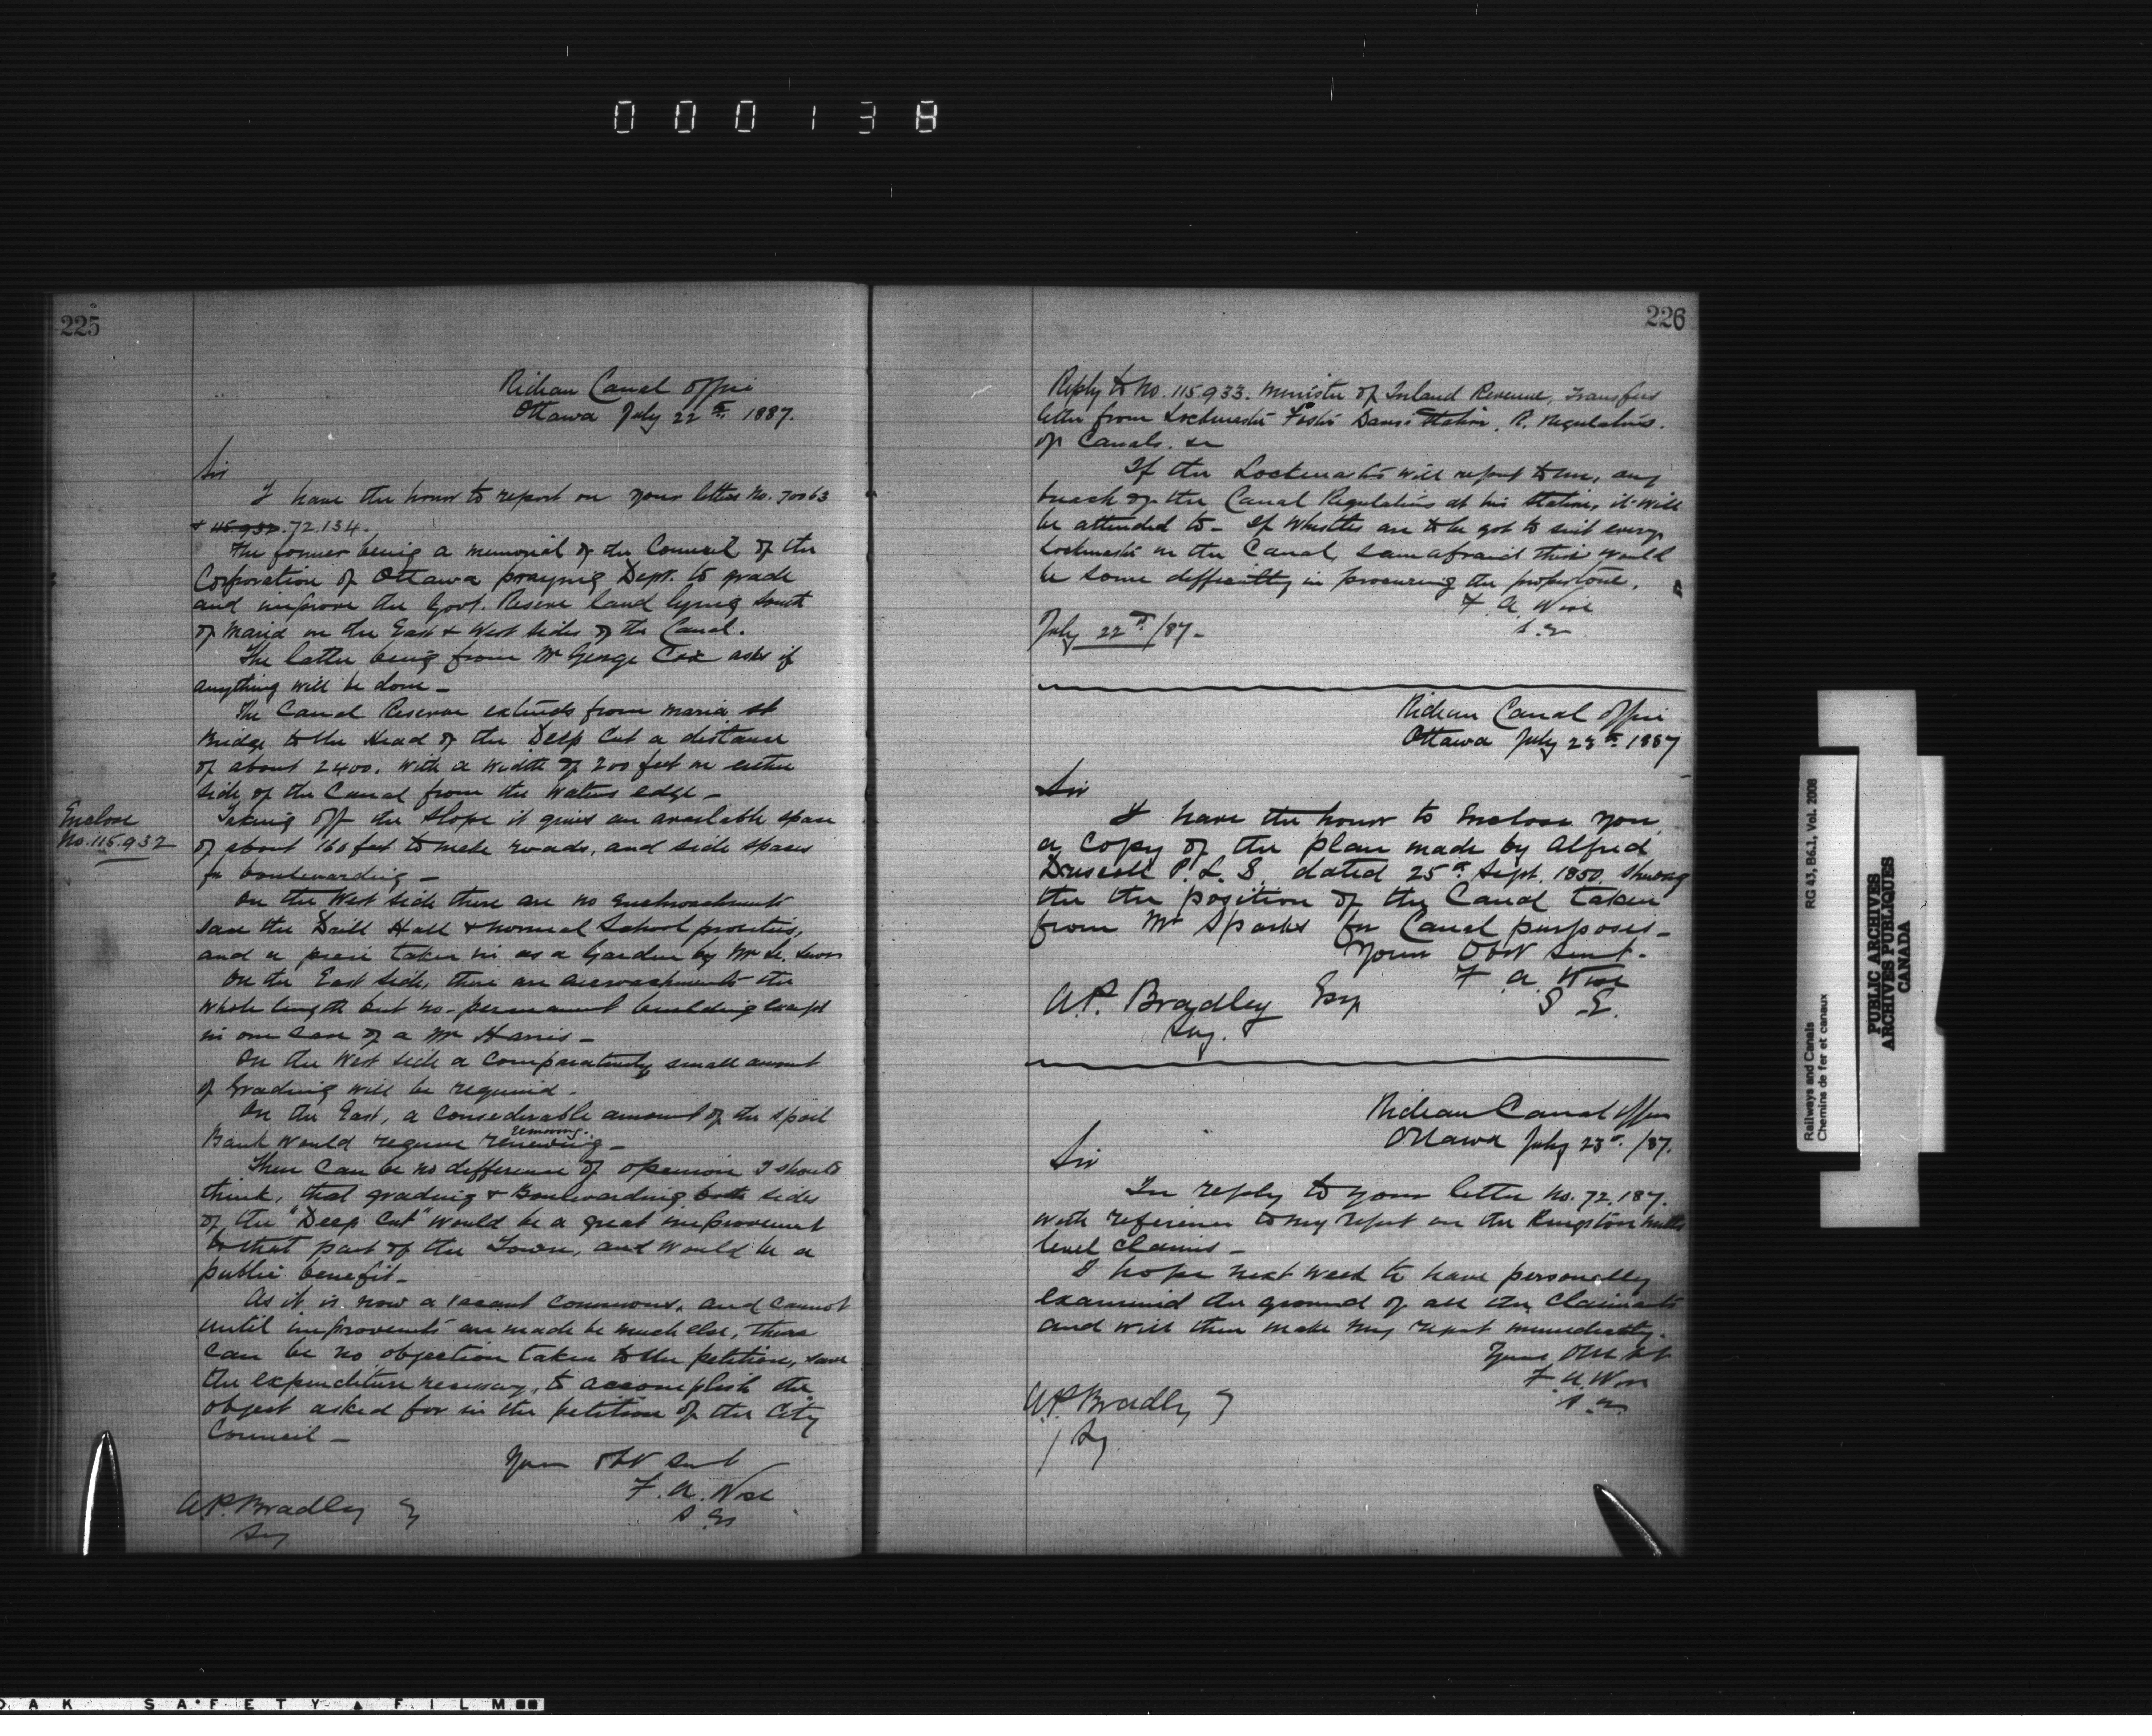 000138
225
Rideau Canal Office
Ottawa July 22nd 1887.
Sir
I have the honor to report on your letters No. 70063
+ 115.932. 72.134.
The former being a memorial of the Council of the
Corporation of Ottawa praying Dept. to grade
and improve the Govt. Reserve land lying South
of Maria on the East & West sides of the Canal.
The latter being from Mr George Cox asks if
anything will be done –
The Canal Reserve extends from Maria St
Bridge to the Head of the Deep Cut a distance
of about 2400. With a width of 200 feet on either
side of the Canal from the Waters edge –
Enclose
No. 115.932
Taking off the slope it gives an available space
of about 160 feet to make roads, and side spaces
for boulevarding –
On the West side there are no encroachments
save the Drill Hall & Normal School
and a piece taken in as a Garden by Mr
On the East side, there are encroachments the
whole length but no permanent building except
in one case of a Mr Harris –
On the West side a comparatively small amount
of Grading will be required.
On the East, a considerable amount of the Spoil
Bank would require renewing – removing.
There can be no difference of opinion I should
think, that grading & Boulevarding both sides
of the "Deep Cut" would be a great improvement
to that part of the Town, and would be a
public benefit –
As it is now a vacant commons, and cannot
until improvements are made be much else, there
can be no objection taken to the petition, save
the expenditure necessary, to accomplish the
object asked for in the petition of the City
Council –
Your Obt Servt
F. A. Wise
S. E.
A.P. Bradley
Sy
226
Reply to No. 115.933. Minister of Inland Revenue, Transfers
letter from Lockmaster Foster Davis Station, R. Regulations.
of Canals. &c
If the Lockmaster will report to me, any
breach of the Canal Regulations at his Station, it will
be attended to – If Whistles are to be got to suit every
Lockmaster on the Canal, I am afraid there would
be some difficulty in procuring the proper tone.
F. A. Wise
S. E.
July 22nd /87 –
Rideau Canal Office
Ottawa July 23rd 1887
Sir
I have the honor to Enclose you
a copy of the plan made by Alfred
Driscoll P. L. S. dated 25th Sept. 1850. showing
the the position of the Canal taken
from Mr Sparks for Canal purposes –
Your Obt Servt.
F. A. Wise
S. E.
A.P. Bradley Esq
Secy.
Rideau Canal Office
Ottawa July 23rd. /87.
Sir
In reply to your letter No. 72.187.
with reference to my report on the Kingston Mills
level claims –
I hope next week to have personally
examined the ground of all the claimants
and will then make my report immediately.
Your Obt St
F. A. Wise
S. E.
A.P. Bradley
Sy
Railways and Canals RG 43, B6.1, Vol. 2008
Chemins de fer et canaux
PUBLIC ARCHIVES
ARCHIVES PUBLIQUES
CANADA
DAK SAFETY FILM